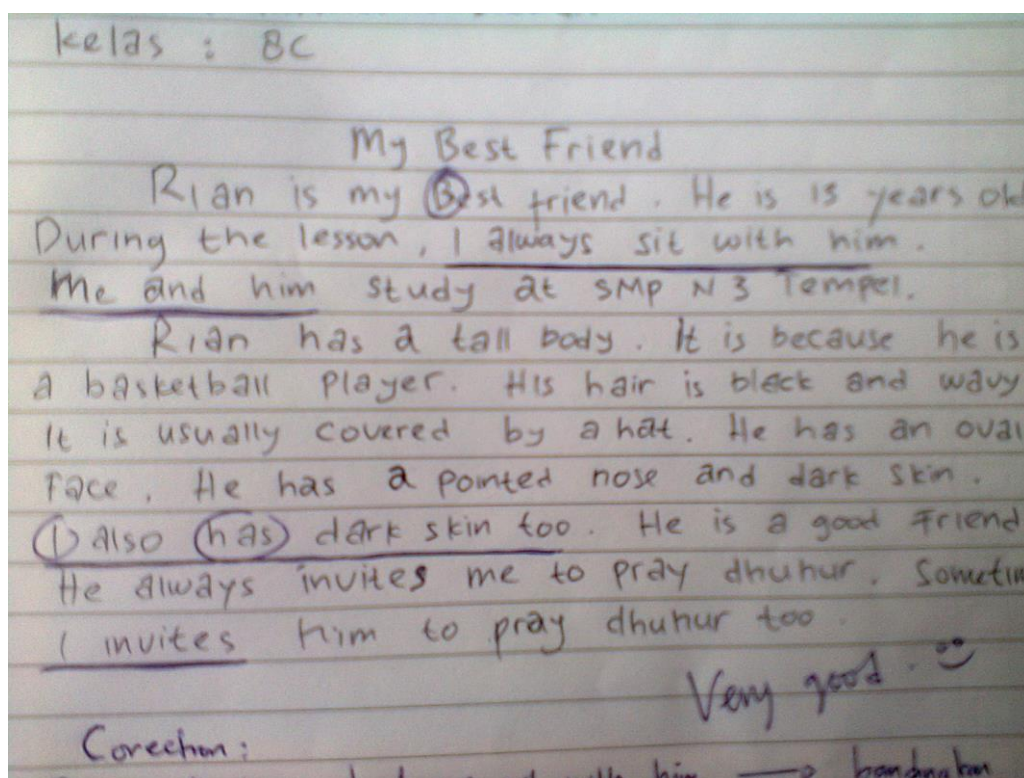 kelas : 8C
My Best Friend
Rian is my Best friend. He is 13 years old
During the lesson, I always sit with him.
Me and him study at SMP N 3 Tempel.
Rian has a tall body. It is because he is
a basketball player. His hair is bleck and wavy
It is usually covered by a hat. He has an oval
Face. He has a pointed nose and dark skin.
I also has dark skin too. He is a good Friend
He always invites me to pray dhuhur. Sometim
I invites him to pray dhuhur too.
Very good. :)
Corection:
with him →